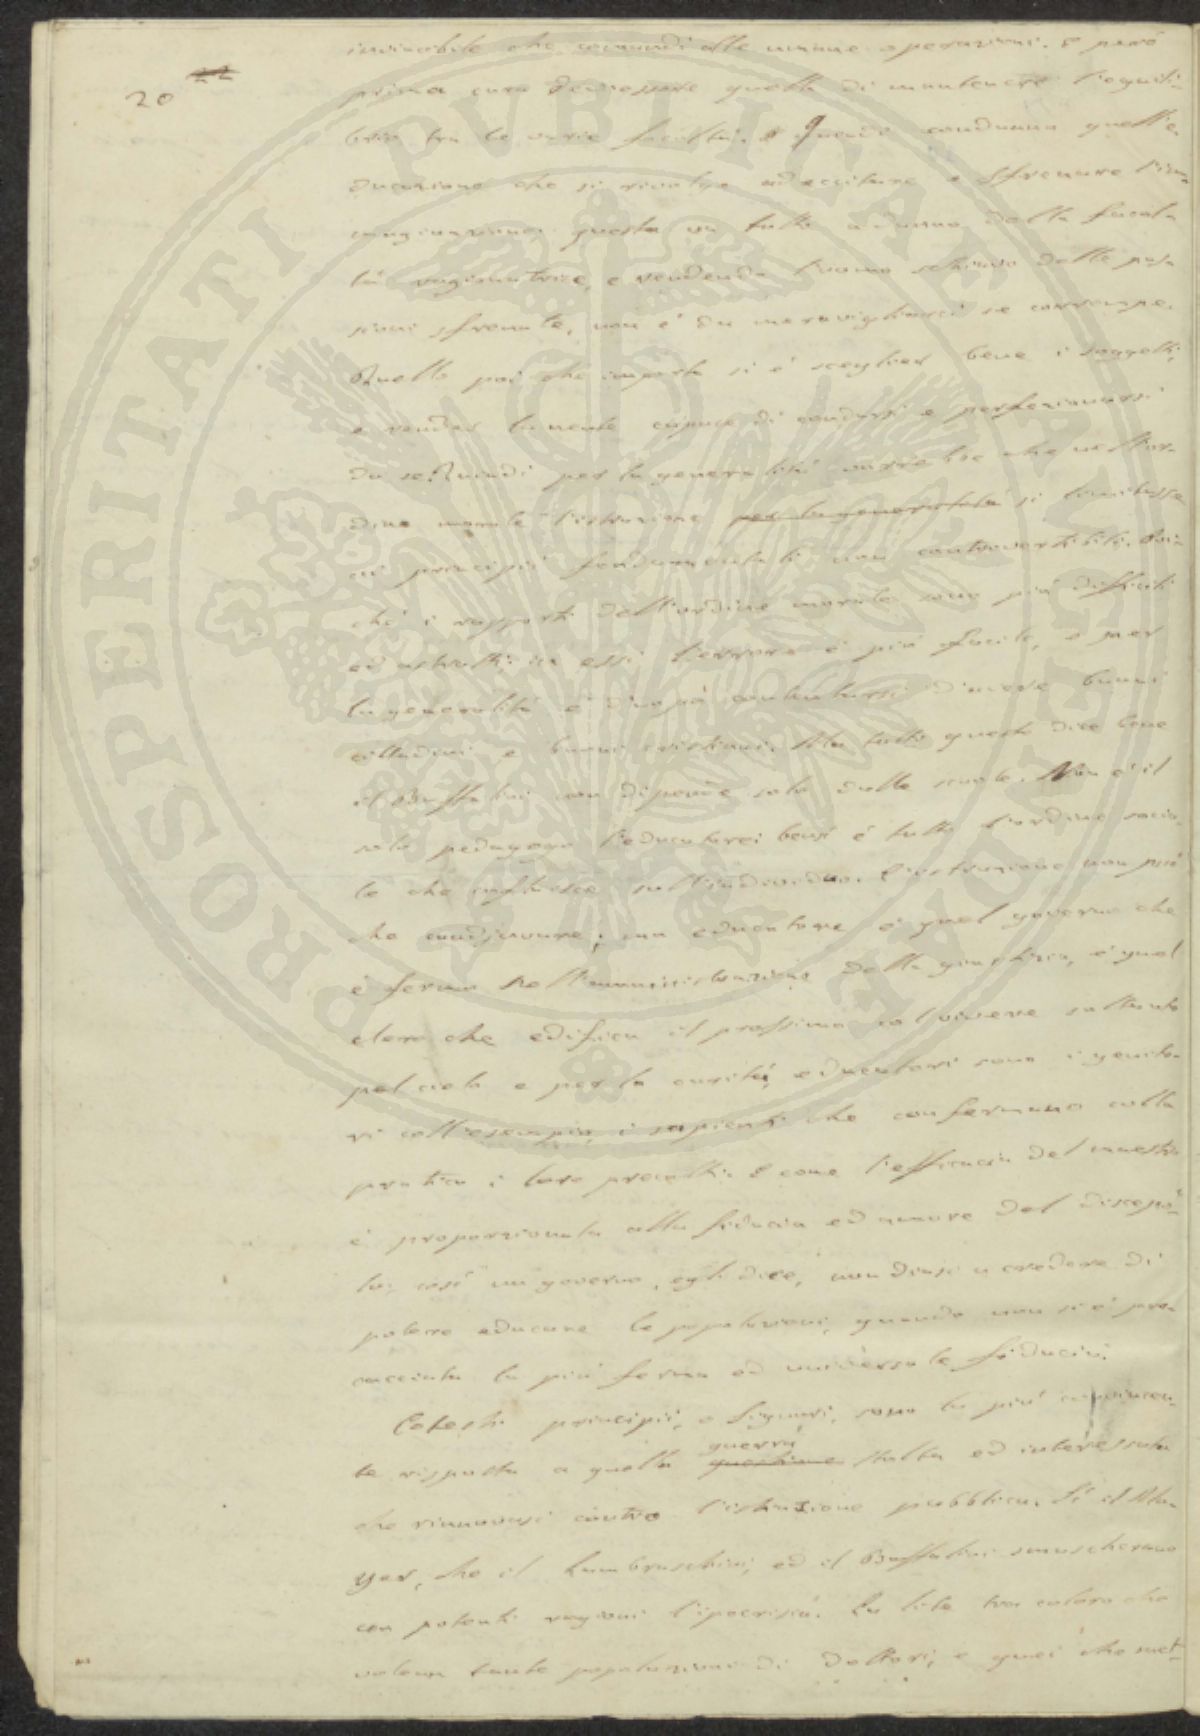 20 22
invincibile che comandi alle umane operazioni. E però
prima cura dev'essere quella di mantenere l'equili-
brio tra le varie facoltà. E quando condanna quell'e-
ducazione che si rivolge ad eccitare e sfrenare l'im-
maginazione, questa va tutta a danno della facol-
tà ragionatrice, e rendendo l'uomo schiavo delle pas-
sioni sfrenate, non è da meravigliarci se corrompe.
Quello poi che importa si è sceglier bene i soggetti,
e render la mente capace di condursi e perfezionarsi
da se. Quindi per la generalità vorrebbe che nell'or-
dine morale l'istruzione per la generalità si limitasse
ai principii fondamentali non controvertibili. Poi-
chè i rapporti dell'ordine morale sono più difficili
ed astratti: in essi l'errore è più facile, e per
la generalità è d'uopo contentarsi d'avere buoni
cittadini e buoni cristiani. Ma tutto questo dice bene
il Buffalini non dipende solo dalle scuole. Non è il
solo pedagogo l'educatore: bensì è tutto l'ordine socia-
le che influisce sull'individuo. L'istruzione non può
che coadjuvare; ma educatore è quel governo che
è fermo nell'amministrazione della giustizia, è quel
clero che edifica il prossimo col vivere soltanto
pel cielo e per la carità, educatori sono i genito-
ri coll'esempio, i sapienti che confermano colla
pratica i loro precetti. E come l'efficacia del maestro
è proporzionata alla fiducia ed amore del discepo-
lo; così un governo, egli dice, non diasi a credere di
potere educare le popolazioni, quando non si è pro-
cacciata la più ferma ed universale fiducia.
Cotesti principii, o Signori, sono la più convincen-
te risposta a quella questione guerra stolta ed interessata
che rinnovasi contro l'istruzione pubblica. Sì il Ma-
yer, che il Lambruschini, ed il Buffalini smascherano
con potenti ragioni l'ipocrisia. La lite tra coloro che
volean tante popolazioni di Dottori, e quei che met-
PROSPERITATI PVBLICAE AVGENDAE